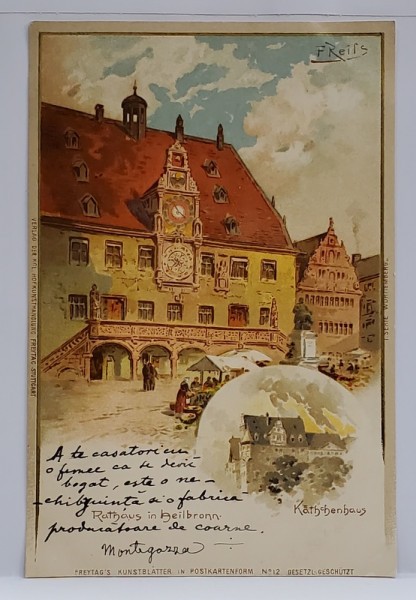 F Reiss
VERLAG DER KGL. HOFKUNSTHANDLUNG FREYTAG-STUTTGART
I. SERIE WÜRTEMBERG.
A te casatori cu
o femee ca să devii
bogat, este o ne-
-chibzuință și o fabrică
producătoare de coarne.
Montegazza
Rathaus in Heilbronn.
Käthchenhaus
FREYTAG'S KUNSTBLÄTTER IN POSTKARTENFORM No 12. GESETZL. GESCHÜTZT